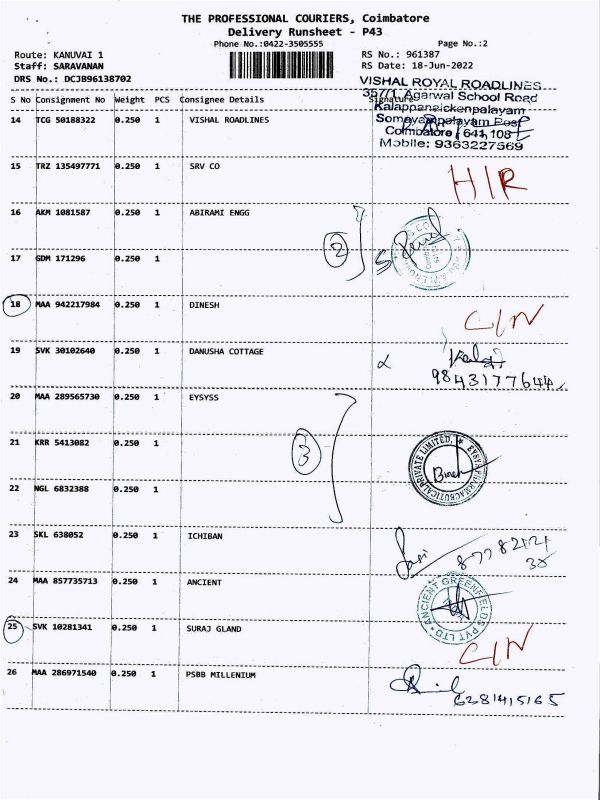 THE PROFESSIONAL COURIERS, Coimbatore
Delivery Runsheet - P43
Phone No.:0422-3505555
Page No.:2
Route: KANUVAI 1
RS No.: 961387
Staff: SARAVANAN
RS Date: 18-Jun-2022
DRS No.: DCJB96138702
VISHAL ROYAL ROADLINES
357/1, Agarwal School Road
S No Consignment No Weight PCS Consignee Details Signature
Kalappanaickenpalayam
14 TCG 50188322 0.250 1 VISHAL ROADLINES
Somayampalayam Post
Coimbatore 641 108
Mobile: 9363227569
15 TRZ 135497771 0.250 1 SRV CO
H/R
16 AKM 1081587 0.250 1 ABIRAMI ENGG
2
17 GDM 171296 0.250 1
18 MAA 942217984 0.250 1 DINESH
C/N
19 SVK 30102640 0.250 1 DANUSHA COTTAGE
9843177644
20 MAA 289565730 0.250 1 EYSYSS
21 KRR 5413082 0.250 1
3
22 NGL 6832388 0.250 1
23 SKL 638052 0.250 1 ICHIBAN
24 MAA 857735713 0.250 1 ANCIENT
ANCIENT GREENFIELDS PVT LTD
25 SVK 10281341 0.250 1 SURAJ GLAND
C/N
26 MAA 286971540 0.250 1 PSBB MILLENIUM
6281415165